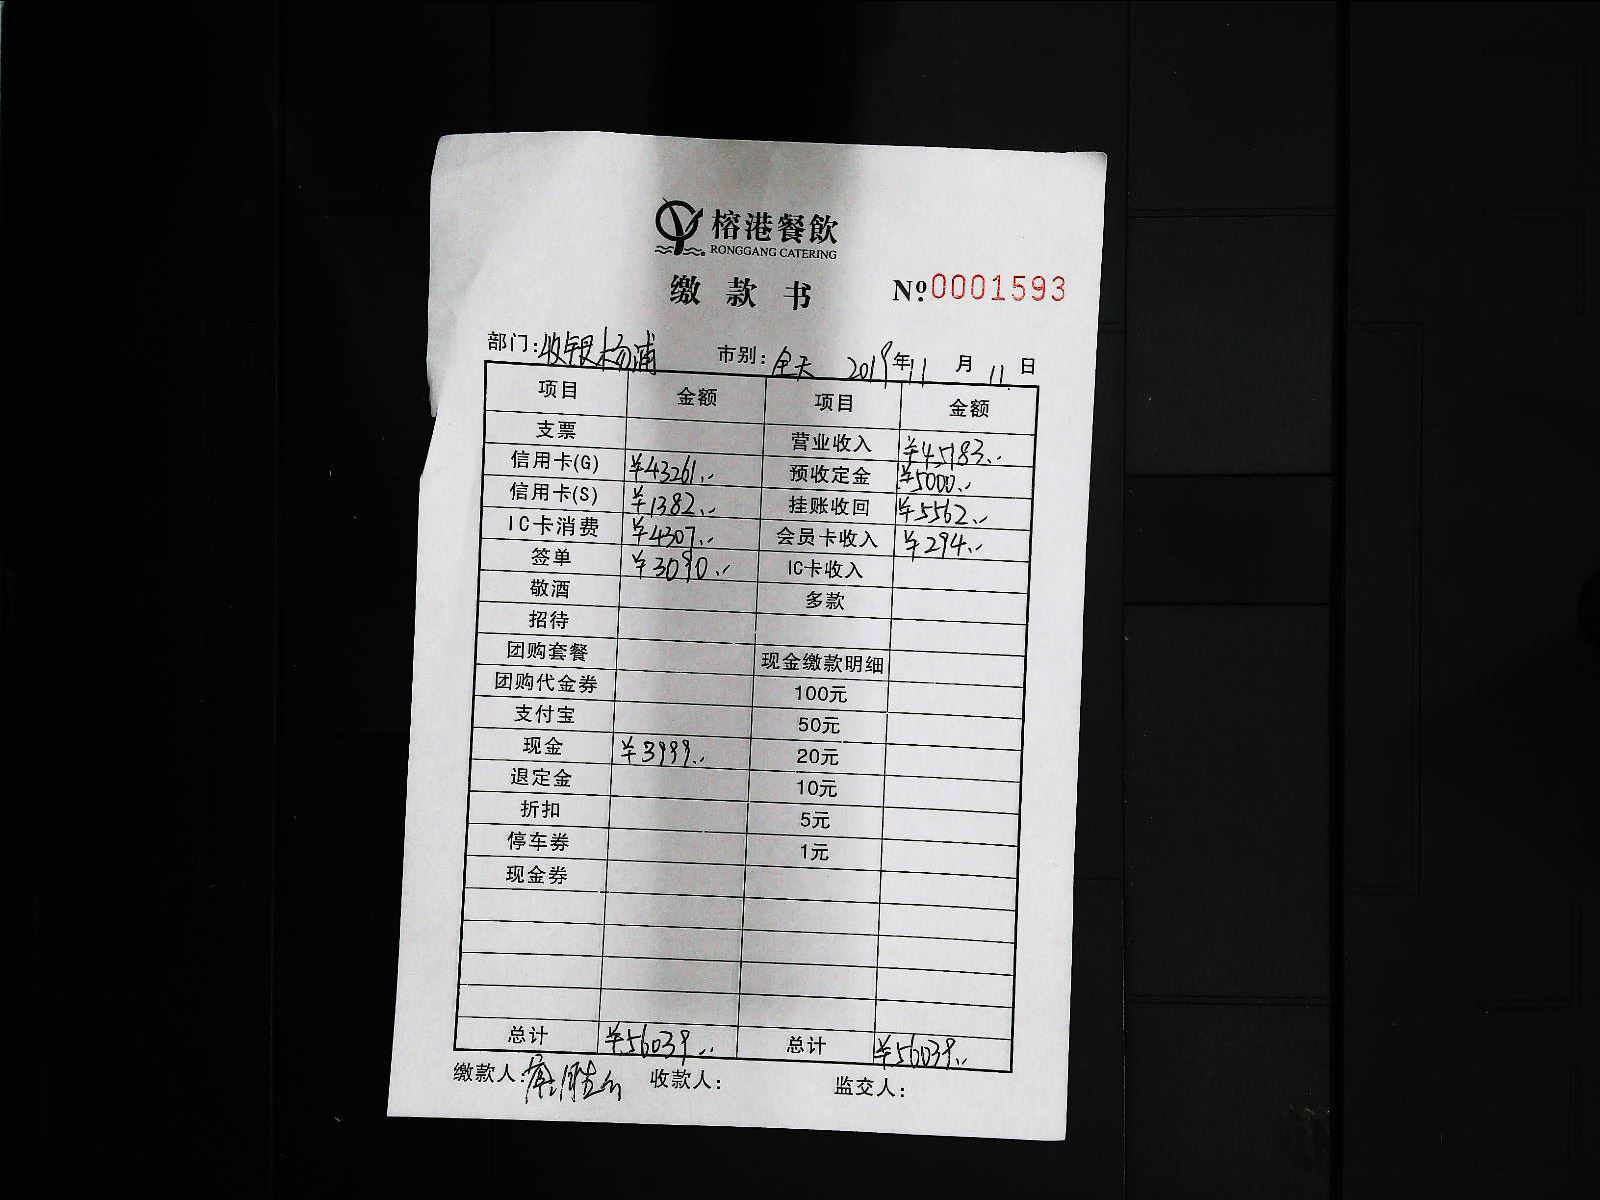 榕港餐飲
RONGGANG CATERING
缴款书 №0001593
部门:收银杨浦 市别:全天 2019年11月11日
项目 金额 项目 金额
支票 营业收入 ¥45183.-
信用卡(G) ¥43261.- 预收定金 ¥5000.-
信用卡(S) ¥1382.- 挂账收回 ¥5562.-
IC卡消费 ¥4307.- 会员卡收入 ¥294.-
签单 ¥3090.- IC卡收入
敬酒 多款
招待
团购套餐 现金缴款明细
团购代金券 100元
支付宝 50元
现金 ¥3999.- 20元
退定金 10元
折扣 5元
停车券 1元
现金券
总计 ¥56039.- 总计 ¥56039.-
缴款人: 收款人: 监交人: